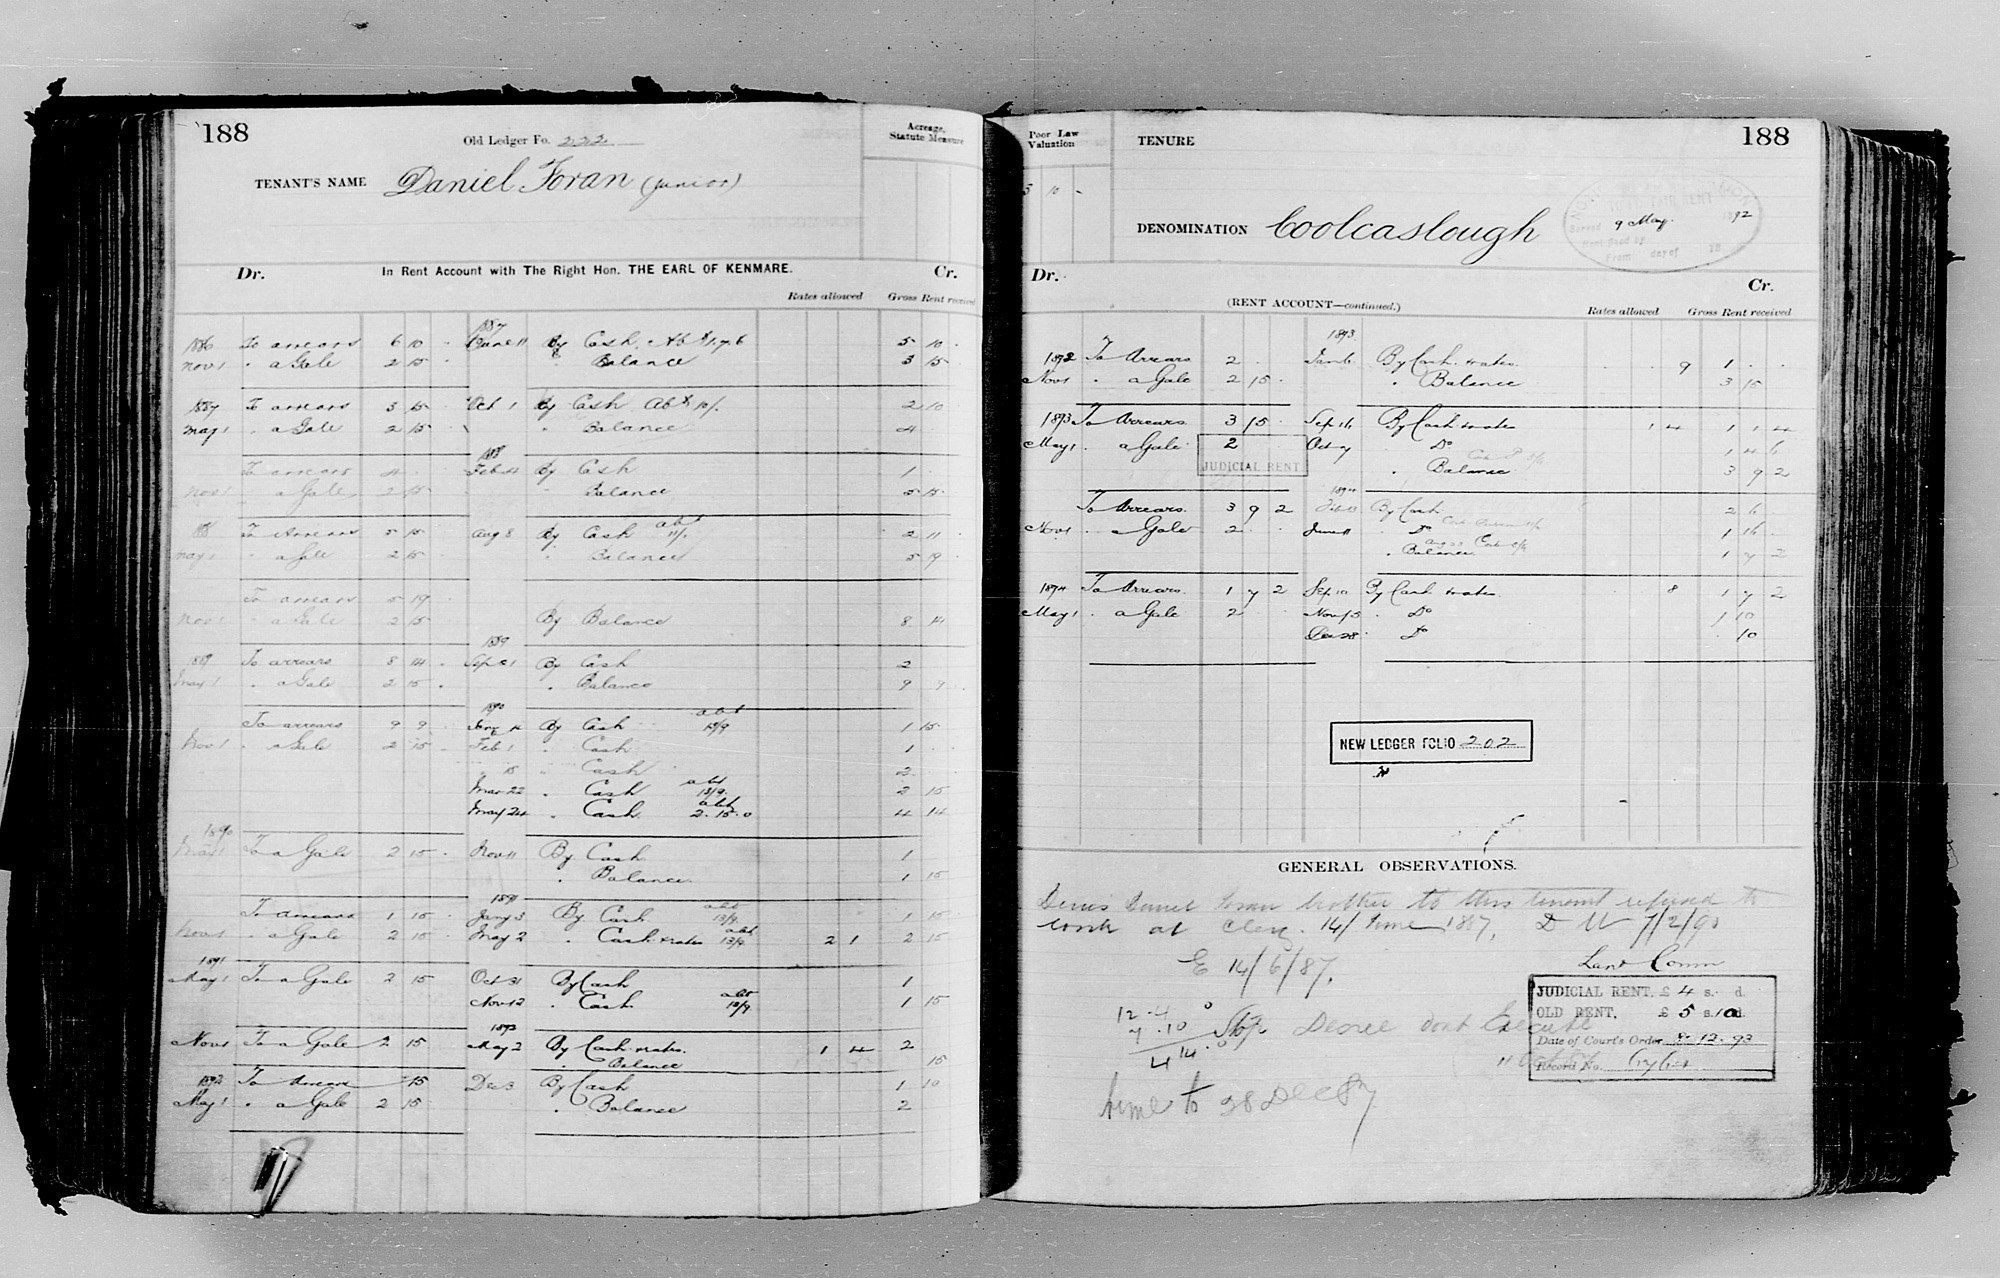 188
Old Ledger Fo. 222
Acreage,
Statute Measure
TENANT'S NAME Daniel Foran (junior)
Dr. In Rent Account with The Right Hon. THE EARL OF KENMARE. Cr.
Rates allowed Gross Rent received
1887
1886 To arrears 6 10 - June 11 By Cash, Abt 1.7.6 5 10 -
Nov 1 " a Gale 2 15 " Balance 3 15 -
1887 To arrears 3 15 Oct 1 By Cash Abt 10/. 2 10
May 1 " a Gale 2 15 " Balance 4
1888
To arrears 4 Feb 4 By Cash 1
Nov 1 " a Gale 2 15 " Balance 5 15
abt
1888 To Arrears 5 15 Aug 8 By Cash 11/. 2 11
May 1 " a Gale 2 15 " Balance 5 19
To arrears 5 19
Nov 1 " a Gale 2 15 By Balance 8 14
1889
1889 To arrears 8 14 Sept 1 By Cash 2
May 1 " a Gale 2 15 " Balance 9 9
1890 abt
To arrears 9 9 By Cash 13/9 1 15
Nov 1 " a Gale 2 15 Feb 1 " Cash 1
" 15 " Cash 2
abt
Mar 22 " Cash 13/9 2 15
abt
May 24 " Cash 2.15.0 4 14
1890
May 1 To a Gale 2 15 Nov 11 By Cash 1
" Balance 1 15
1891 abt
To arrears 1 15 Jany 3 By Cash 13/9 1 15
abt
Nov 1 " a Gale 2 15 May 2 " Cash & rates 13/9 2 1 2 15
1891
May 1 To a Gale 2 15 Oct 31 By Cash 1
abt
Nov 12 " Cash 13/9 1 15
Nov 1 To a Gale 2 15 May 2 By Cash & rates 1 4 2
" Balance 15
1892 To Arrears 15 Dec 3 By Cash 1 10
May 1 " a Gale 2 15 " Balance 2
Poor Law
Valuation
TENURE
188
5 10 -
DENOMINATION Coolcaslough
9 May 92
Dr. Cr.
(RENT ACCOUNT—continued.)
Rates allowed Gross Rent received
1893
1892 To Arrears 2 Jan 6 By Cash & rates 9 1
Nov 1 " a Gale 2 15 " Balance 3 15
1893 To Arrears 3 15 Sep 16 By Cash & rates 1 4 1 1 4
May 1 " a Gale 2 Oct 7 " Do 1 4 6
JUDICIAL RENT
" Balance 3 9 2
1894
To Arrears 3 9 2 By Cash 2 6
Nov 1 " a Gale 2 June 11 " Do 1 16
" Balance 1 7 2
1894 To Arrears 1 7 2 Sep 10 By Cash & rates 8 1 7 2
May 1 " a Gale 2 Nov 13 " Do 1 10
Dec 28 " Do 10
NEW LEDGER FOLIO 202
GENERAL OBSERVATIONS.
Denis Daniel Foran brother to this tenant refused to
work at 14/ June 1887,
E 14/6/87.
Land Comm
JUDICIAL RENT, £ 4 s. d.
OLD RENT, £ 5 s. 10 d.
Date of Court's Order 8.12.93
Record No.
12.4.0
7.10
4 14.0
Stop Decree dont Execute
time to 28 Dec 87